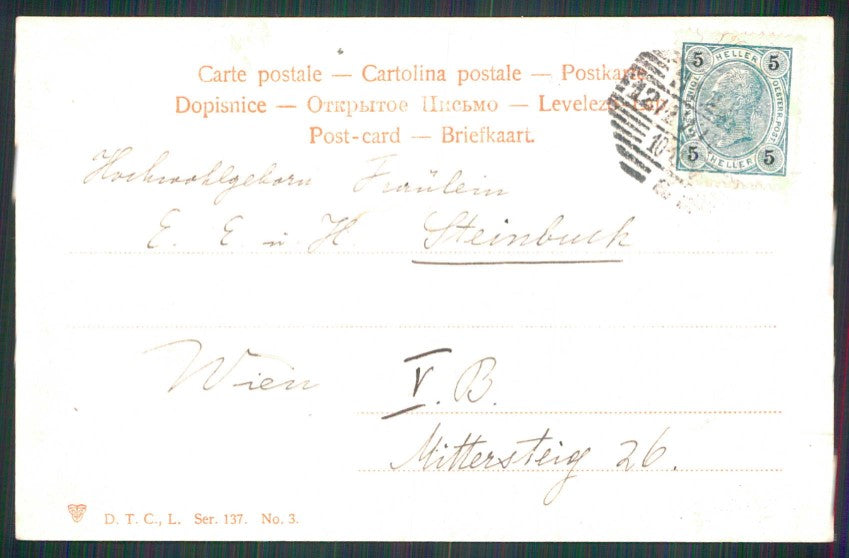 Carte postale — Cartolina postale — Postkarte
Dopisnice — Открытое Письмо —
Post-card — Briefkaart.
5 HELLER 5
OESTERR. POST
5 HELLER 5
12
10
Hochwohlgeborn Fräulein
E. E. u. H. Steinbuck
Wien V. B.
Mittersteig 26.
D. T. C., L. Ser. 137. No. 3.